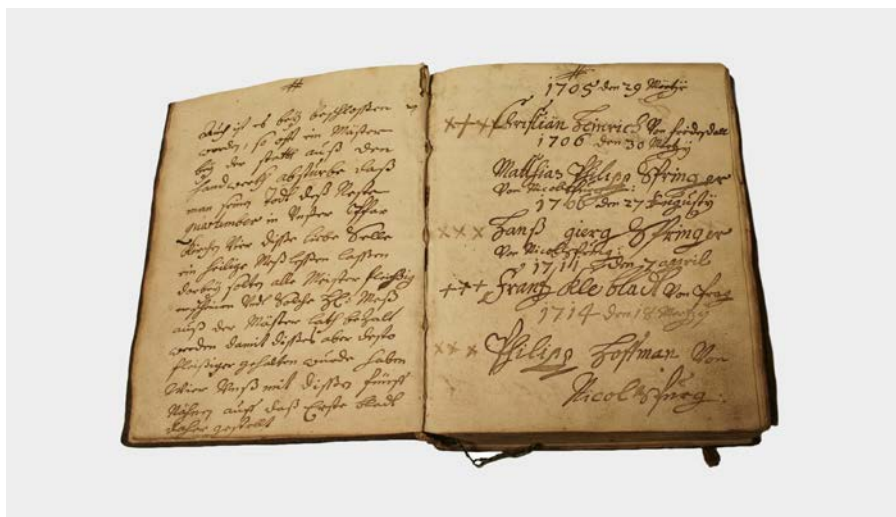 Auch ist es beÿ beschlossen
worden, so offt ein Mäster
beÿ der statt auß den
handwerch abstürbe daß
man seinen Todt deß Neste
quartember in Unßer Pffar
Kirchen Vier disse liebe Selle
ein heilige Meß lessen lassen
darbeÿ sollen alle Meister fleissig
erscheinen Undt solche
auß der Mäster lath bezalt
werden damit disses aber desto
fleissiger gehalten wurde haben
Wier Unß mit dissen fünff
Nahmen auff daß Erste bladt
daher gestellt
1705 den 29 Märtzÿ
+++ Christian Heinrich Von
1706 den 30 Märtzÿ
Matthias Philipp Springer
Von Nicolspurg:
1706 den 27 Augustÿ
××× Hanß gierg Springer
Von Nicolspurg:
1711 den 7 april
+++ Frantz Kleblatt Von Prag
1714 den 18 Märtzÿ
××× Philipp Hoffman Von
Nicolspurg: